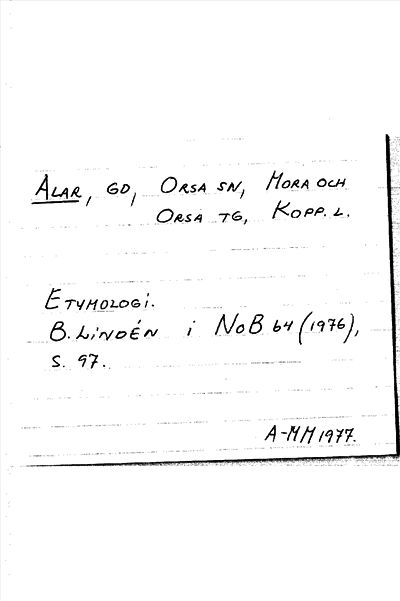 Alar, GD, Orsa sn, Mora och
Orsa tg, Kopp. l.
Etymologi.
B. Lindén i NoB 64 (1976),
s. 97.
A-MM 1977.